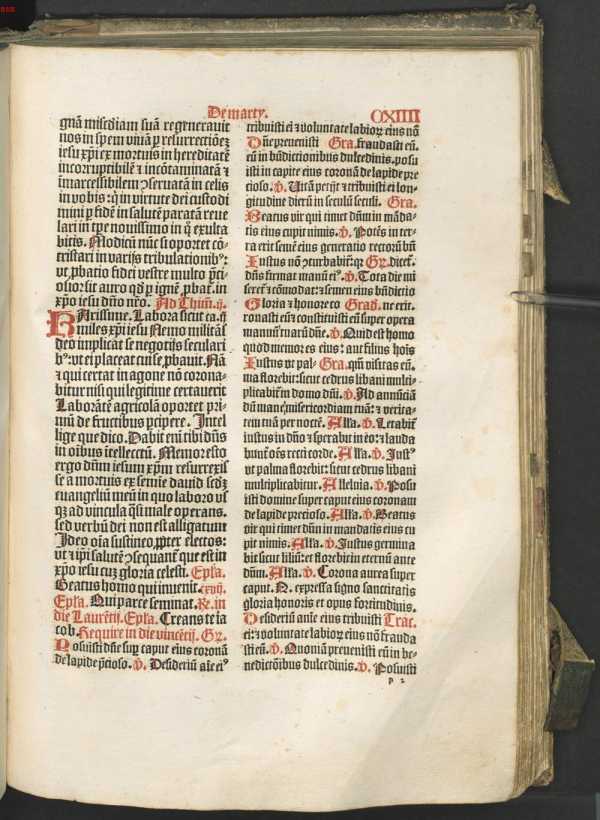 De marty.
CXIIII
gnā misc̄diam suā regenerauit
nos in spem viuā p̱ resurrectiōeꝫ
iesu xp̄i ex mortuis in hereditatē
incorruptibilē ⁊ incōtaminatā ⁊
īmarcessibilem ꝯseruatā in celis
in vobis: q̇ in virtute dei custodi
mini p̱ fidē in salutē paratā reue
lari in tp̄e nouissimo in q̇ exulta
bitis. Modicū nūc si oportet cō-
tristari in varijs tribulationibꝰ:
vt ꝓbatio fidei vestre multo p̄ci-
osior sit auro qd̄ p̱ ignē ꝓbat. in
xp̄o iesu dn̄o nr̄o. Ad Thim̄. ij.
KArissime. Labora sicut
miles xp̄i iesu Nemo militās
deo implicat se negotijs seculari
bꝰ: vt ei placeat cui se ꝓbauit. Nā
⁊ qui certat in agone nō corona-
bitur nisi qui legitime certauerit
Laborātē agricolā oportet pri-
mū de fructibus p̱cipere. Intel
lige que dico. Dabit em̄ tibi dn̄s
in oībus ītellectū. Memor esto
ergo dn̄m iesum xp̄m resurrexis
se a mortuis ex semīe dauid scd̄ꝫ
euangeliū meū in quo laboro vs
qꝫ ad vincula q̄si male operans.
sed verbū dei non est alligatum
Ideo oīa sustineo ꝓpter electos:
vt ⁊ ip̄i salutē ꝯsequant̄ que est in
xp̄o iesu cuꝫ gloria celesti. Epl̄a.
Beatus homo qui inuenit. cxvij.
Epl̄a. Qui parce seminat. Re. in
die Laurētij. Epl̄a. Creans te ia
cob. Require in die vincētij. Gr̄.
POsuisti dn̄e sup̱ caput eius coronā
de lapide p̄cioso. v̄. Desideriū aīe eiꝰ
tribuisti ei ⁊ voluntate labioꝝ eius nō
Dn̄e preuenisti Gra. fraudasti eū.
eū in bn̄dictionibus dulcedinis. posu
isti in capite eius coronā de lapide pre
cioso. v̄. Vitā petijt ⁊ tribuisti ei lon
gitudinē dierū in seculū seculi. Gra.
Beatus vir qui timet dn̄m in mādā-
tis eius cupit nimis. v̄. Potēs in ter-
ra erit semē eius generatio rectorū bn̄
Iustus nō ꝯturbabit̄: qꝛ Gr̄. dicet̄.
dn̄s firmat manū eiꝰ. v̄. Tota die mi
seret̄ ⁊ cōmodat: ⁊ semen eius bn̄dictio
Gloria ⁊ honore co Grad̄. ne erit.
ronasti eū ⁊ constituisti eū super opera
manuū tuarū dn̄e. v̄. Quid est homo
quod memor es eius: aut filius hoīs
Iustus vt pal- Gra. qm̄ visitas eū.
ma florebit: sicut cedrus libani multi-
plicabit̄ in domo dn̄i. v̄. Ad annūciā
dū mane misericordiam tuā: ⁊ verita-
tem tuā per noctē. Alla. v̄. Letabit̄
iustus in dn̄o ⁊ sperabit in eo: ⁊ lauda
bunt̄ oēs recti corde. Alla. v̄. Iustꝰ
vt palma florebit: sicut cedrus libani
multiplicabitur. Alleluia. v̄. Posu
isti domine super caput eius coronam
de lapide precioso. Alla. v̄. Beatus
vir qui timet dn̄m in mandatis eius cu
pit nimis. Alla. v̄. Iustus germina
bit sicut liliū: et florebit in eternū ante
dn̄m. Alla. v̄. Corona aurea super
caput. N. expressa signo sanctitatis
gloria honoris et opus fortitudinis.
DEsideriū anīe eius tribuisti Trac.
ei: ⁊ voluntate labioꝝ eius nō frauda
sti eū. v̄. Quoniā preuenisti eū in be-
nedictōibus dulcedinis. v̄. Posuisti
p 2